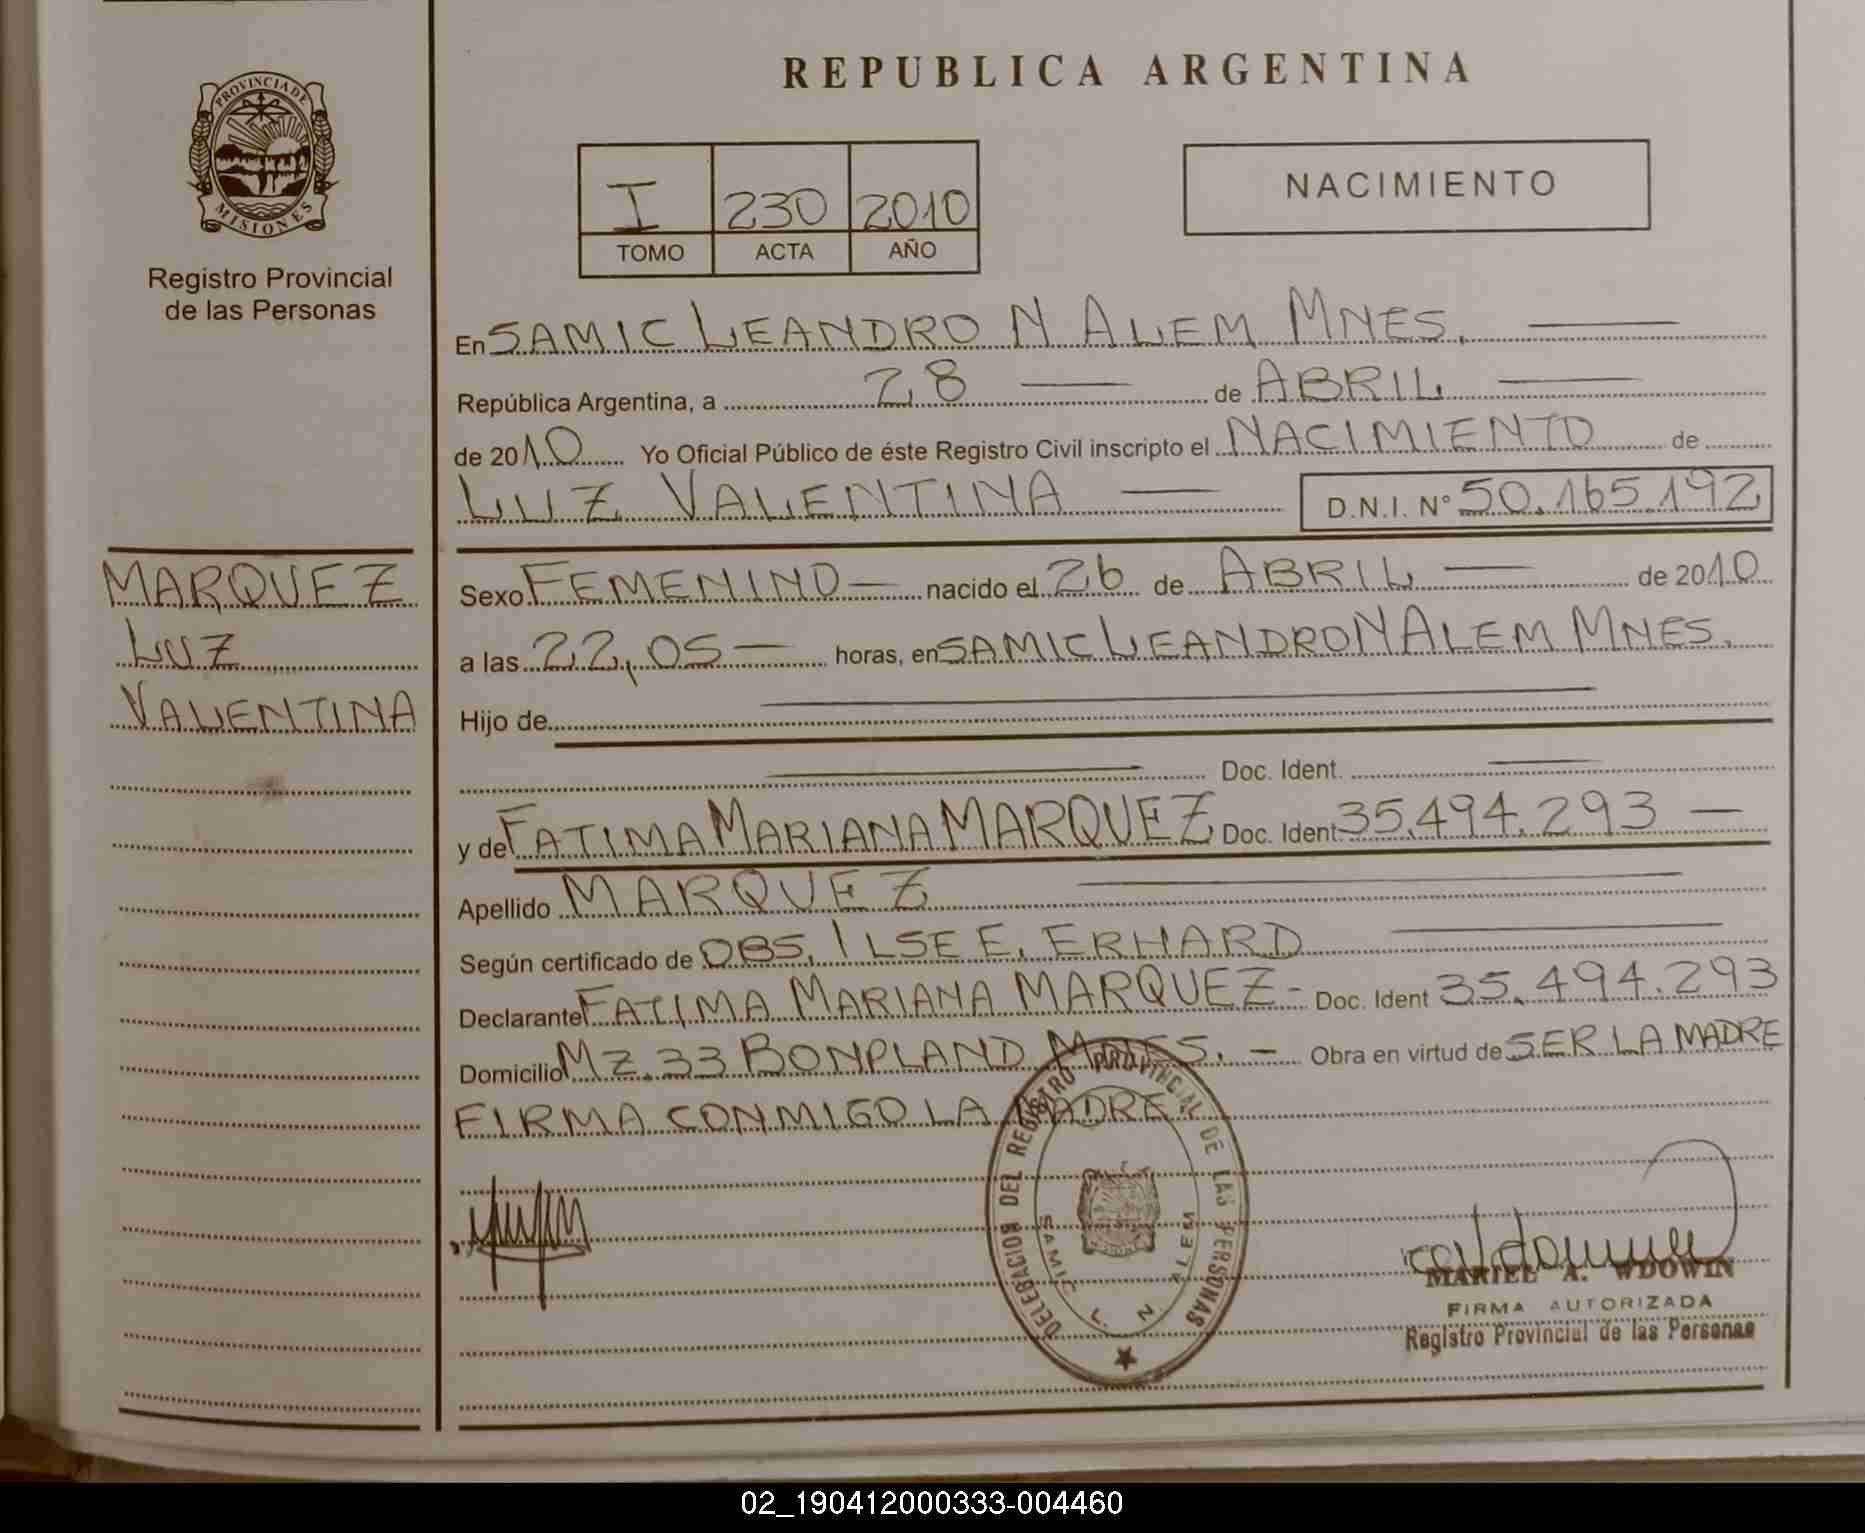 REPUBLICA ARGENTINA
PROVINCIA DE MISIONES
Registro Provincial
de las Personas
I 230 2010
TOMO ACTA AÑO
NACIMIENTO
En SAMIC LEANDRO N ALEM MNES.
República Argentina, a 28 de ABRIL
de 2010 Yo Oficial Público de éste Registro Civil inscripto el NACIMIENTO de
LUZ VALENTINA D.N.I. N° 50.165.192
MARQUEZ
LUZ
VALENTINA
Sexo FEMENINO nacido el 26 de ABRIL de 2010
a las 22,05 horas, en SAMIC LEANDRO N ALEM MNES.
Hijo de
Doc. Ident.
y de FATIMA MARIANA MARQUEZ Doc. Ident 35.494.293
Apellido MARQUEZ
Según certificado de OBS. ILSE E. ERHARD
Declarante FATIMA MARIANA MARQUEZ Doc. Ident 35.494.293
Domicilio MZ.33 BONPLAND MNES. Obra en virtud de SER LA MADRE
FIRMA CONMIGO LA MADRE
DELEGACION DEL REGISTRO PROVINCIAL DE LAS PERSONAS
SAMIC L. N. ALEM
MARIEL A. WDOWIN
FIRMA AUTORIZADA
Registro Provincial de las Personas
02_190412000333-004460